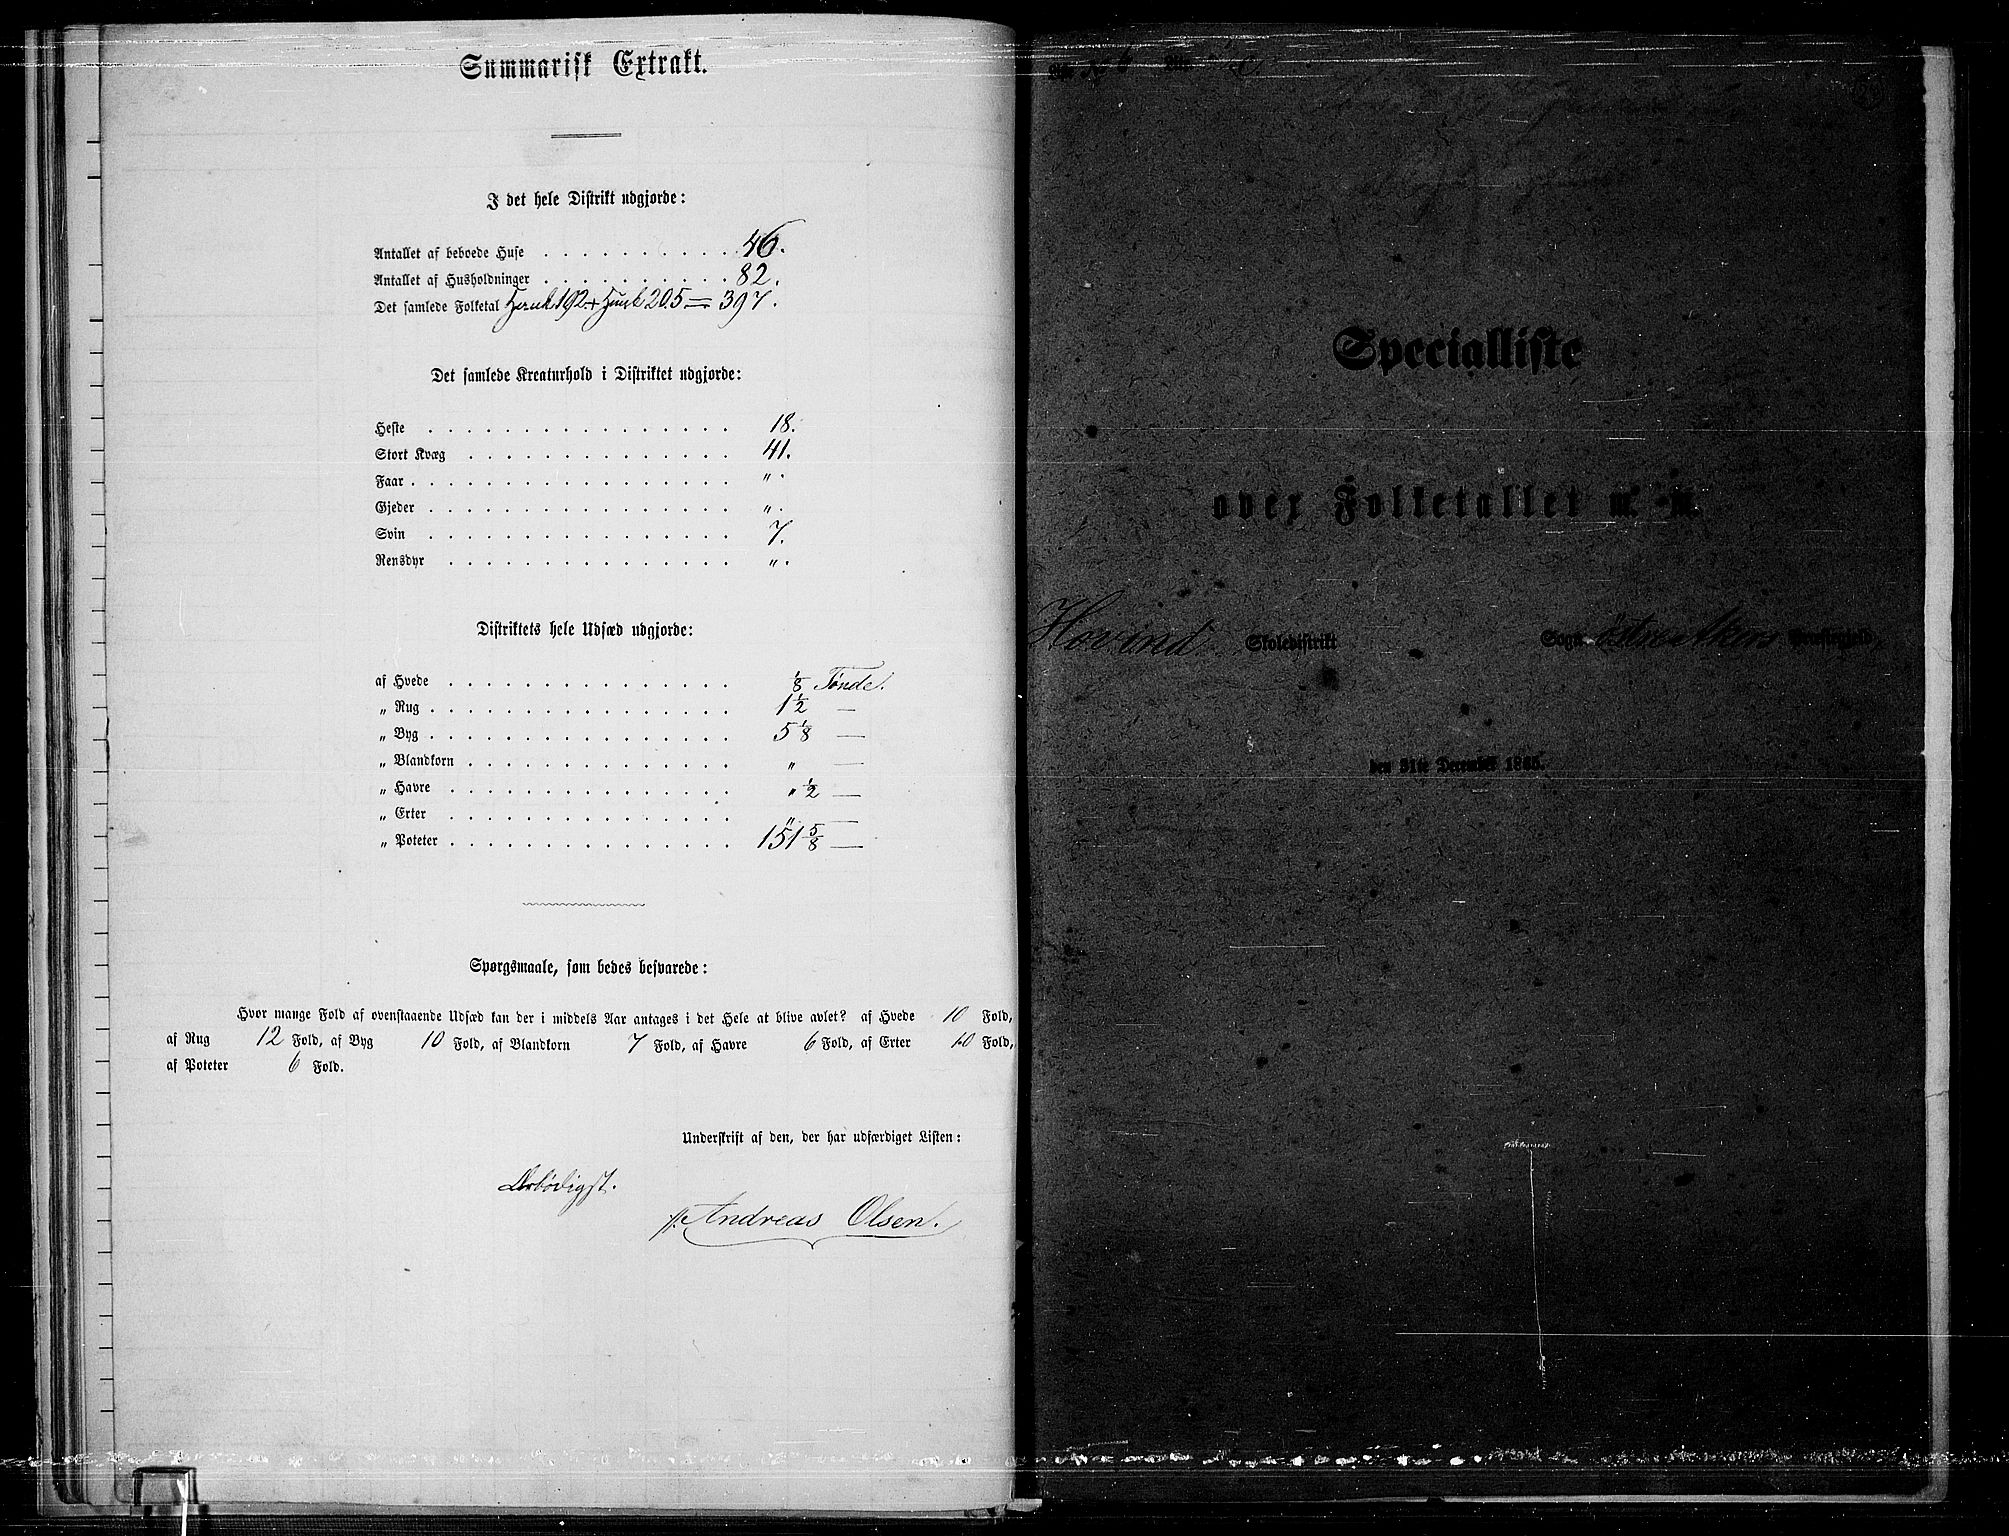 Summarisk Extrakt.
I det hele Distrikt udgjorde:
Antallet af beboede Huse . . . . . . . . . . 46.
Antallet af Husholdninger . . . . . . . . . . 82.
Det samlede Folketal 192 + 205 = 397.
Det samlede Kreaturhold i Distriktet udgjorde:
Heste . . . . . . . . . . 18.
Stort Kvæg . . . . . . . . . . 41.
Faar . . . . . . . . . . " .
Gjeder . . . . . . . . . . " .
Svin . . . . . . . . . . 7.
Rensdyr . . . . . . . . . . " .
Distriktets hele Udsæd udgjorde:
af Hvede . . . . . . . . . . 1/8 Tønde.
" Rug . . . . . . . . . . 1 1/2 —
" Byg . . . . . . . . . . 5 1/8 —
" Blandkorn . . . . . . . . . . " —
" Havre . . . . . . . . . . " 1/2 —
" Erter . . . . . . . . . . "
" Poteter . . . . . . . . . . 151 5/8 —
Spørgsmaale, som bedes besvarede:
Hvor mange Fold af ovenstaaende Udsæd kan der i middels Aar antages i det Hele at blive avlet? af Hvede 10 Fold,
af Rug 12 Fold, af Byg 10 Fold, af Blandkorn 7 Fold, af Havre 6 Fold, af Erter 10 Fold,
af Poteter 6 Fold.
Underskrift af den, der har udfærdiget Listen:
Ærbødigst.
Andreas Olsen.
Specialliste
over Folketallet m. m.
Hovind Skoledistrikt Sogn Østre Akers Præstegjeld,
den 31te December 1865.